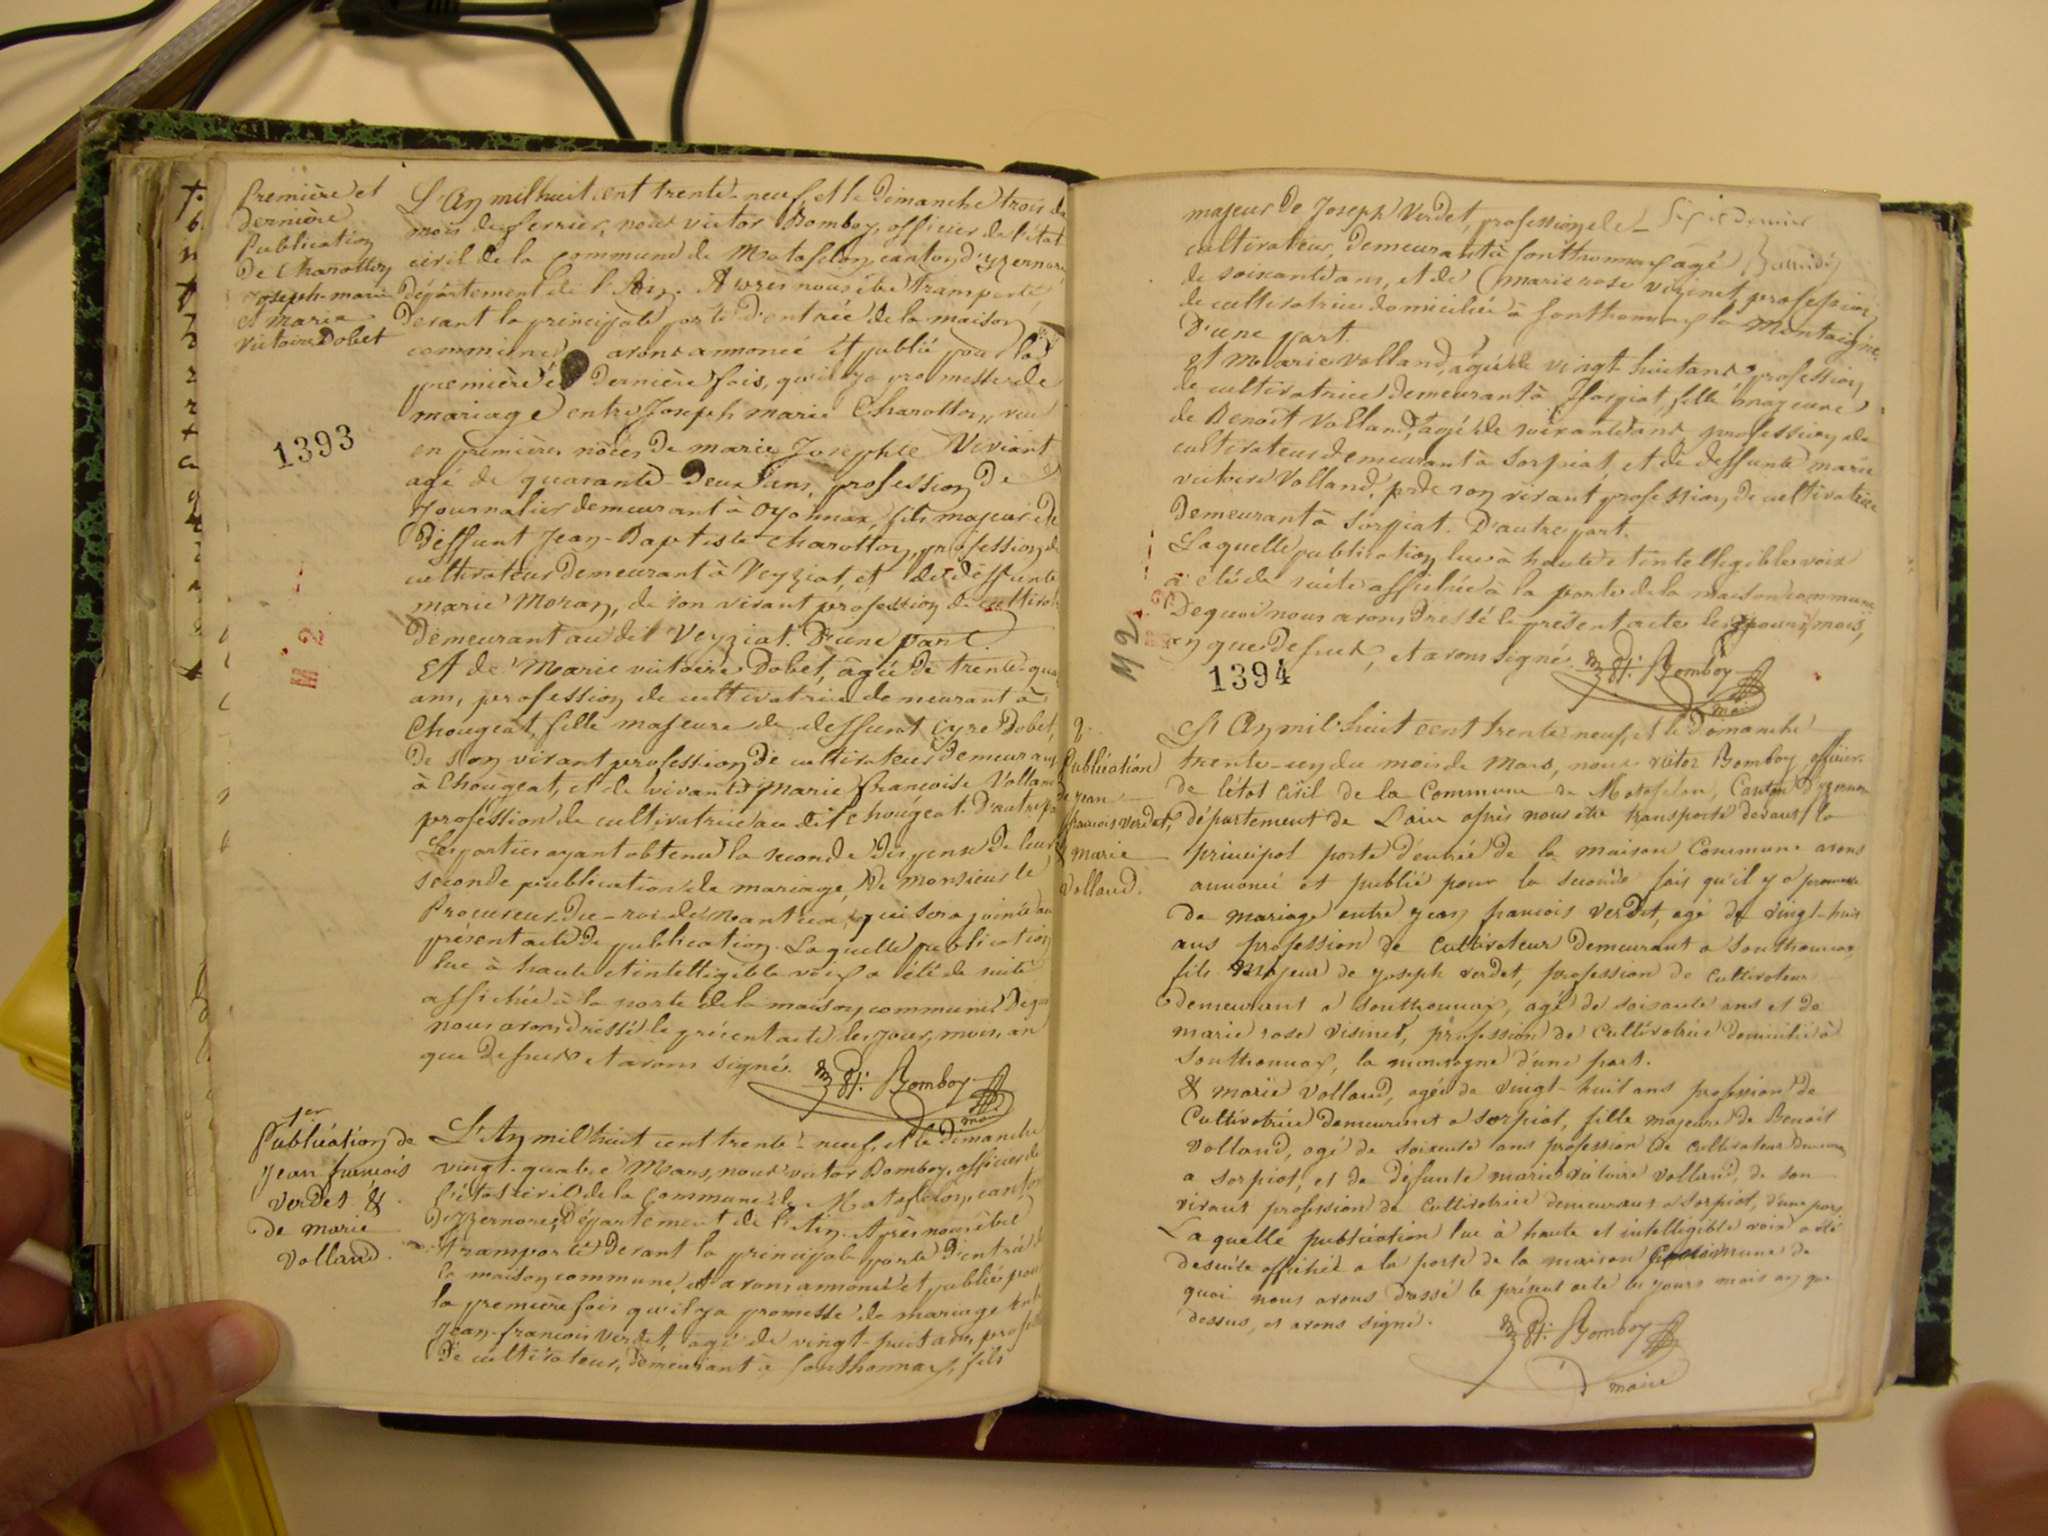 Première et
Dernière
Publication
De Charotton
Joseph-marie
et Maria
victoire Dobet
1393
L'An mil huit cent trente-neuf, et le Dimanche trois du
mois de ferrier, nous victor Bomboy, officier de l'état
civil de la commune de Matafelon, canton d'yzernore
Département de l'Ain. Après nous être transporté
Devant la principale porte D'entrée de la maison
commune avons annoncé et publié pour la
première et Dernière fois, qu'il y a promesse de
mariage entre Joseph marie Charotton, veuf
en premières nôces De marie Josephte Viviant
agé de quarante-Deux ans, profession De
Journalier demeurant à Oyonnax, fils majeur de
Deffunt Jean-Baptiste Charotton, profession de
cultivateur Demeurant à Veyziat, et de deffunte
marie Moran, de son vivant profession de
Demeurant au dit Veyziat. D'une part.
Et de Marie victoire Dobet, âgée De trente-qua
ans, profession de cultivatrice demeurant à
Chougeat, fille majeure de deffunt Cyre Dobet,
De son vivant profession De cultivateur Demeurant
à Chougeat, et de vivante Marie françoise Volland
profession de cultivatrice au dit Chougeat. D'autre pa
Les parties ayant obtenu la seconde dispense De leur
seconde publication de mariage, De Monsieur le
Procureur-Du-roi de Nantua, qui sera jointe au
présent acte De publication. Laquelle publication
lue à haute et intelligible voix a été de suite
affichée à la porte de la maison commune De quoi
nous avons dressé le présent acte les jour, mois, an
que Dessus et avons signé. Bomboy
maire
1er
Publication de
Jean francois
verdet &
de marie
Volland.
L'An mil huit cent trente-neuf, et le Dimanche
vingt-quatre Mars, nous victor Bomboy, officier de
l'état civil de la Commune de Matafelon, canton
D'yzernore, Département de l'Ain. Après nous être
transporté Devant la principale porte D'entrée de
la maison commune, et avons annoncé et publié pour
la première fois qu'il y a promesse de mariage entre
Jean-francois verdet, agé de vingt-huit ans, profession
De cultivateur, Demeurant à Sonthonnax, fils
majeur De Joseph Verdet, profession de
cultivateur, Demeurant à Sonthonnax agé
de soixante ans, et de Marie rose Vizinet, profession
de cultivatrice domiciliée à Sonthonnax la Montaigne.
D'une part.
Et Marie Volland, agée de vingt-huit ans, profession
de cultivatrice demeurant à Sorpiat, fille majeure
de Benoît Volland, agé de soixante ans profession de
cultivateur demeurant à Sorpiat, et de deffunte marie
victoire Volland, de son vivant profession de cultivatrice
Demeurant à Sorpiat. D'autre part.
Laquelle publication lue à haute et intelligible voix
a été de suite affichée à la porte de la maison commune
De quoi nous avons Dressé le présent acte les jours, mois,
an que Dessus, et avons signé. Bomboy
maire
1394
2.
Publication
de Jean
francois verdet,
& marie
Volland.
L'An mil huit cent trente neuf, et le Dimanche
trente-un du mois de Mars, nous victor Bomboy officier
de l'état civil de la Commune de Matafelon, Canton d'yzernore
département de L'ain après nous être transporté devant la
principal porte d'entrée de la maison Commune avons
annoncé et publié pour la seconde fois qu'il y a promesse
de mariage entre jean francois verdet, agé de vingt-huit
ans profession de cultivateur Demeurant a Sonthonnax,
fils majeur de joseph verdet, profession de Cultivateur
demeurant a Sonthonnax, agé de soixante ans et de
marie rose visinet, profession de Cultivatrice domicilié à
Sonthonnax, la montagne d'une part.
& marie Volland, agée de vingt-huit ans profession de
Cultivatrice demeurant a Sorpiat, fille majeure de Benoit
Volland, agé de soixante ans profession de Cultivateur
a Sorpiat, et de défunte marie victoire Volland, de son
vivant profession de Cultivatrice demeurant a Sorpiat, d'une part
Laquelle publication lue à haute et intelligible voix a été
desuite affichée a la porte de la maison Commune de
quoi nous avons dressé le présent acte les jours mois an que
dessus, et avons signé. Bomboy
maire